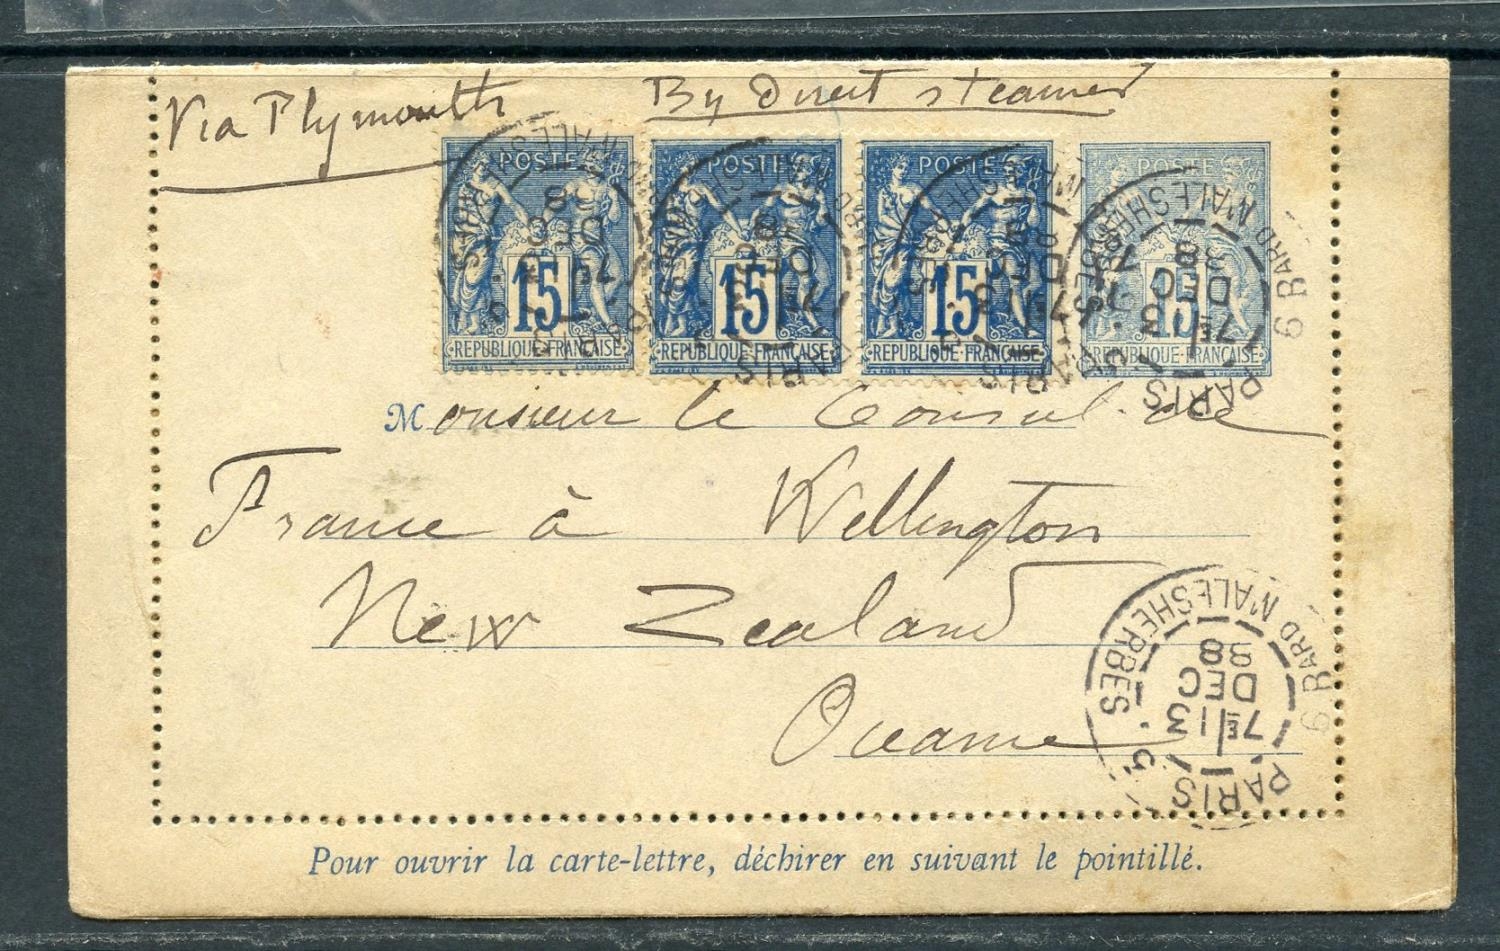 Via Plymouth By Direct steamer
POSTE POSTE POSTE POSTE
15 15 15 15
REPUBLIQUE FRANÇAISE REPUBLIQUE FRANÇAISE REPUBLIQUE FRANÇAISE REPUBLIQUE FRANÇAISE
Monsieur le Consul de
France à Wellington
New Zealand
Oceanie
PARIS
7E 13
DEC
88
BARD MALESHERBES
Pour ouvrir la carte-lettre, déchirer en suivant le pointillé.